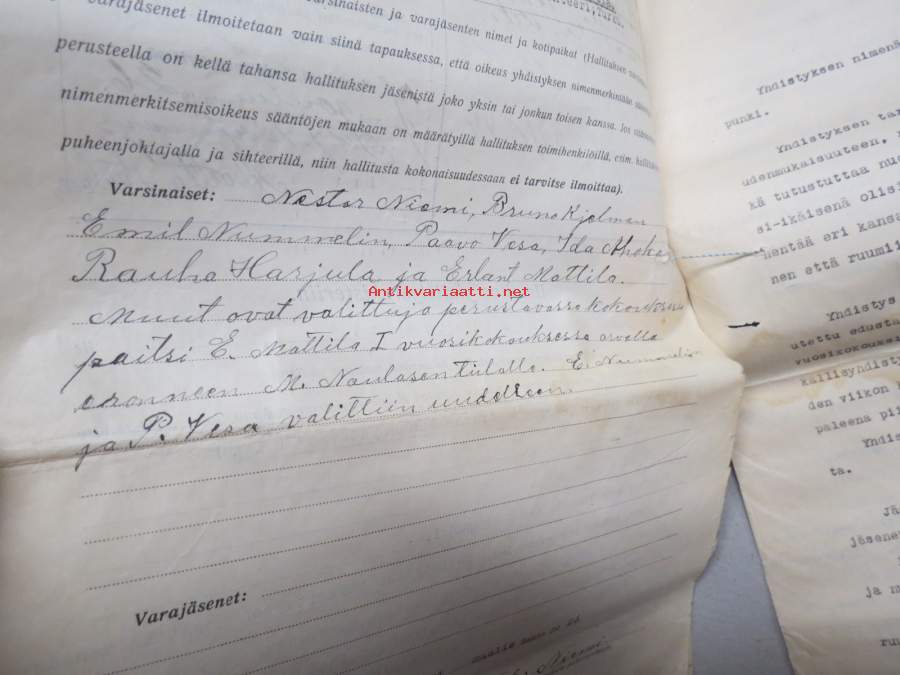 varsinaisten ja varajäsenten nimet ja kotipaikat (Hallituksen
varajäsenet ilmoitetaan vain siinä tapauksessa, että oikeus yhdistyksen nimenmerkintään
perusteella on kellä tahansa hallituksen jäsenistä joko yksin tai jonkun toisen kanssa. Jos
nimenmerkitsemisoikeus sääntöjen mukaan on määrätyillä hallituksen toimihenkilöillä, esim. hallituksen
puheenjohtajalla ja sihteerillä, niin hallitusta kokonaisuudessaan ei tarvitse ilmoittaa).
Varsinaiset: Nestor Niemi, Bruno Kjelman
Emil Nummelin, Paavo Vesa, Ida
Rauha Harjula ja Erlant Mattila.
Muut ovat valittuja perustavassa kokouksessa
paitsi E. Mattila I vuosikokouksessa arvalla
eronneen M. Naulasen tilalle. E. Nummelin
ja P. Vesa valittiin uudelleen.
Varajäsenet:
Niemi
Antikvariaatti.net
Yhdistyksen nimenä
punki.
Yhdistyksen tar
udenmukaisuuteen,
kä tutustuttaa nuo
si-ikäisenä olisi
hentää eri kansa
nen että ruumii
Yhdistys
utettu edusta
vuosikokouks
kallisyhdisty
den viikon
paleena pi
Yhdist
ta.
Jä
jäsene
ja m
run